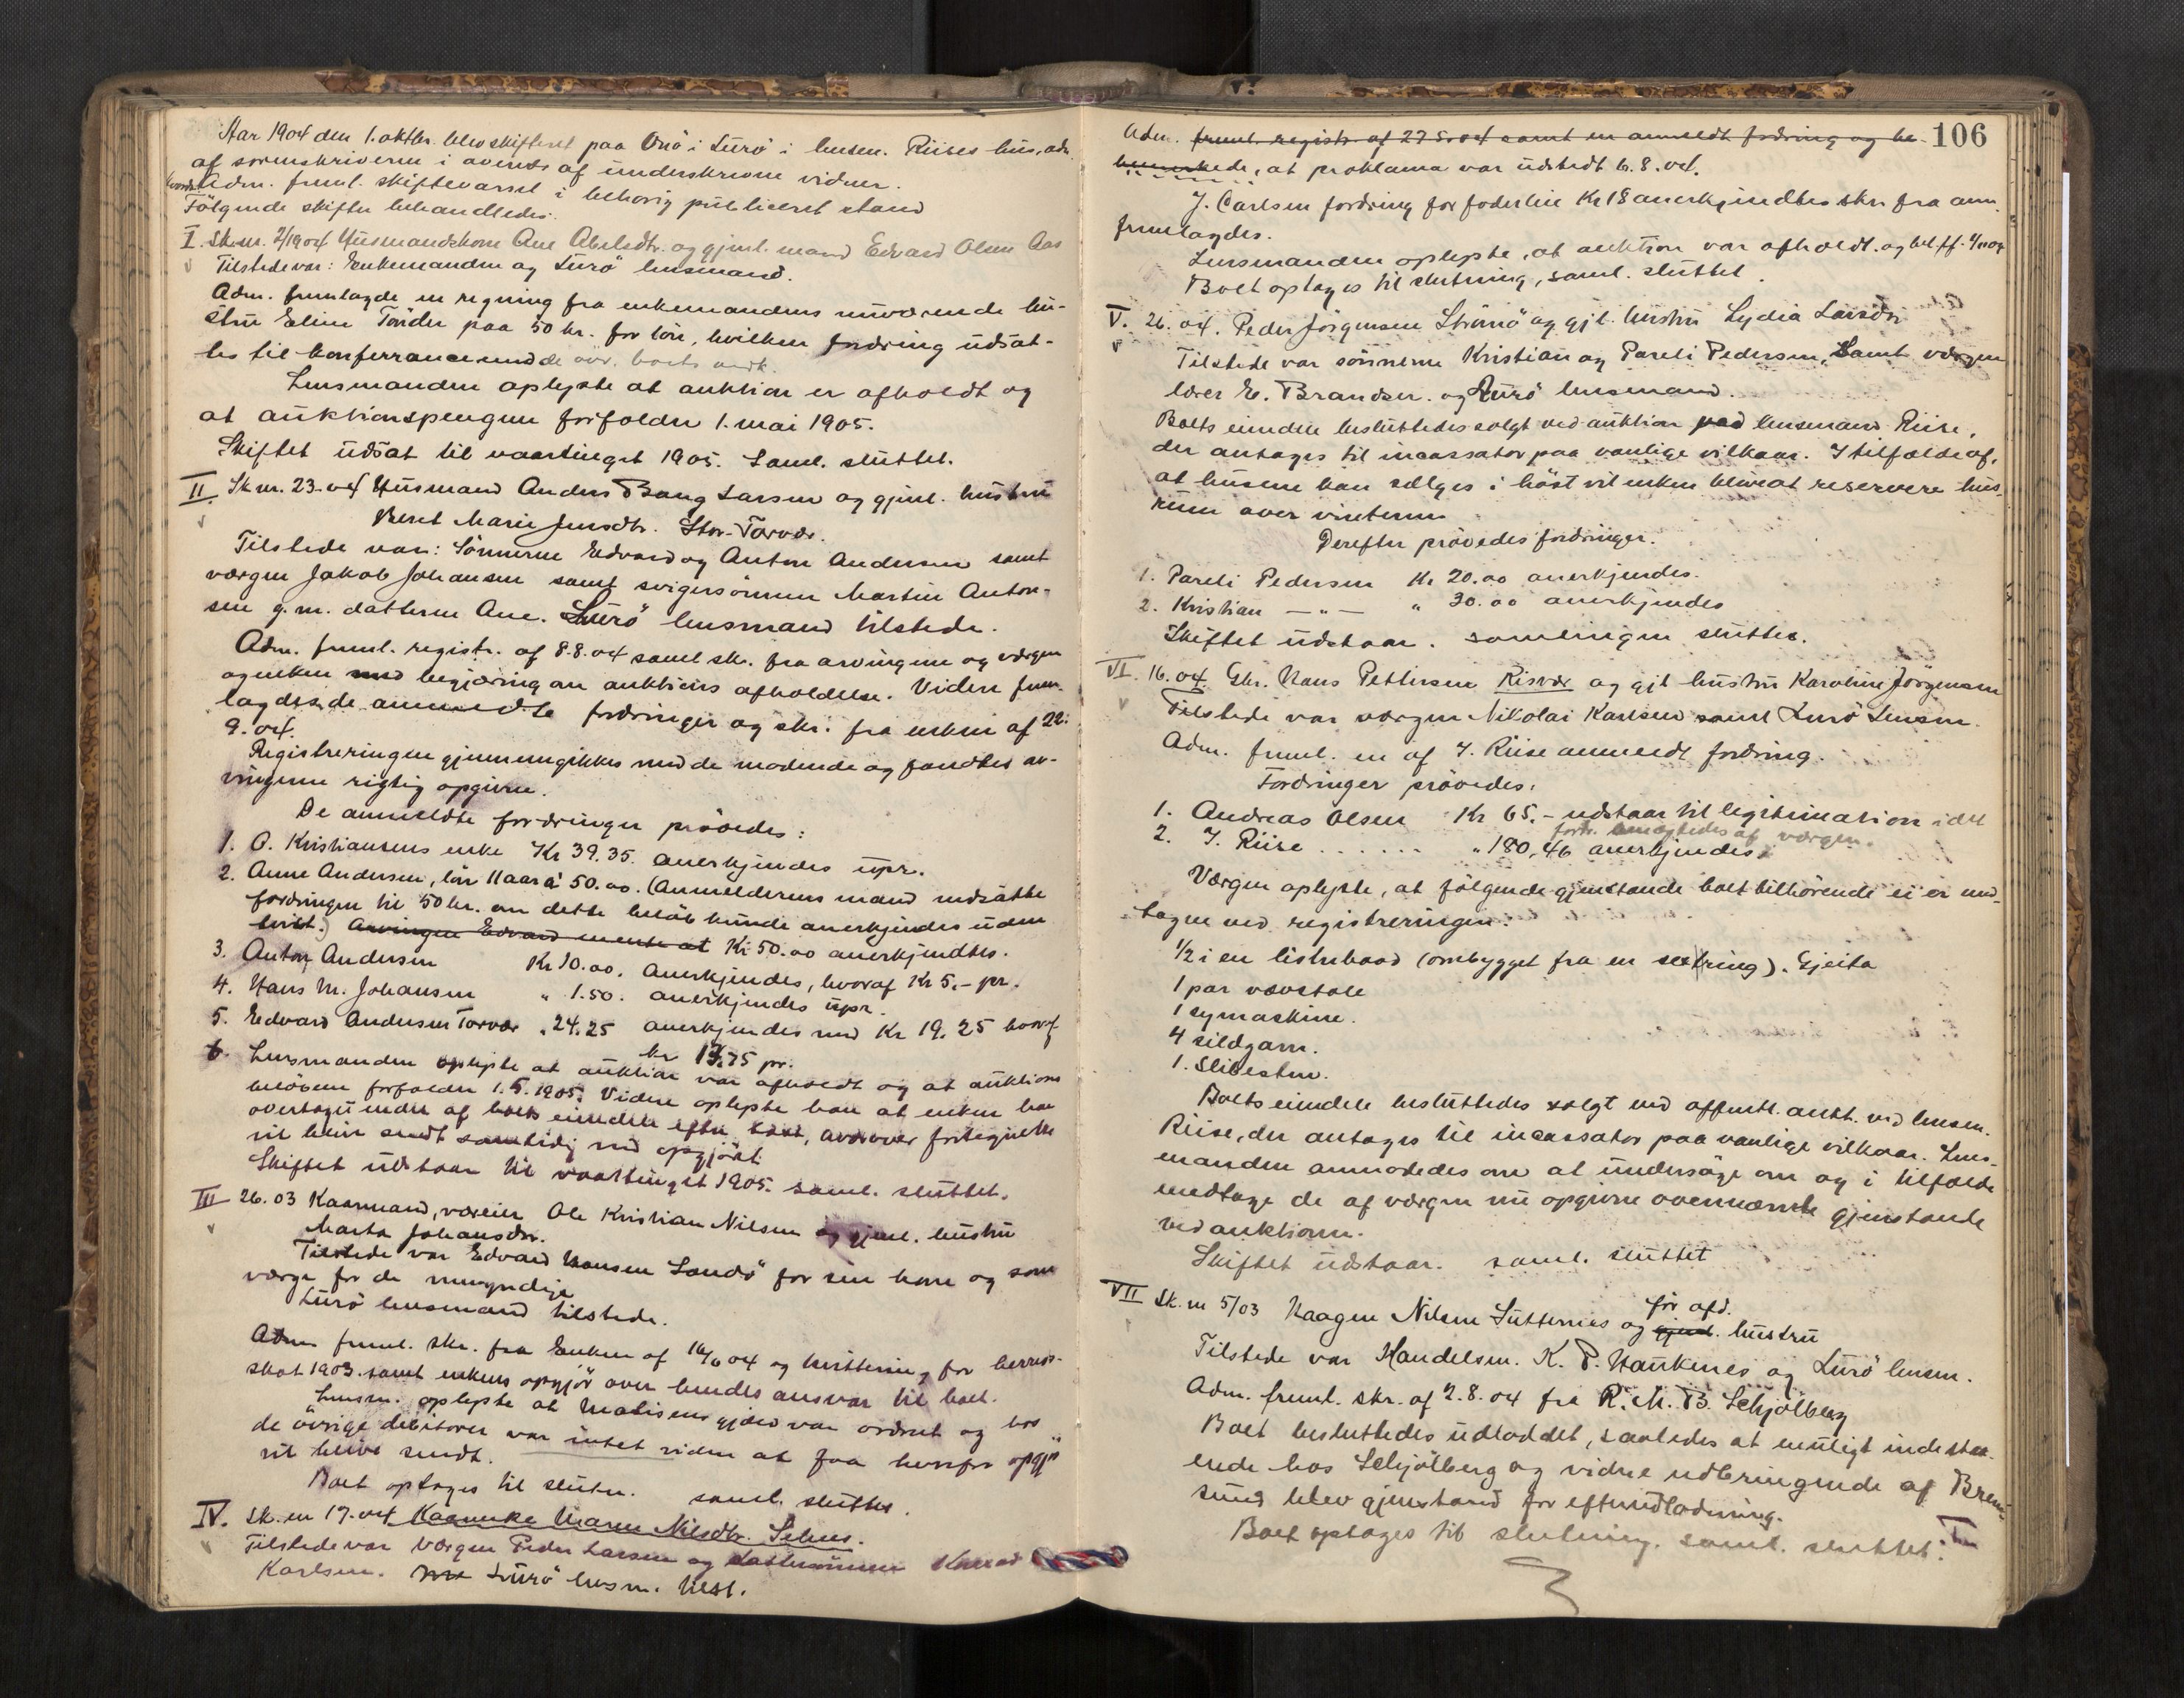 Aar 1904 den 1. oktbr. blev skifteret paa Onö i Lurö i lensm. Riises hus, adm.
af sorenskriveren i overvær af underskrevne vidner.
Adm. freml. skiftevarsel i behörig publiceret stand
Fölgende skifter behandledes.
I. Sk.nr. 2/1904 Husmandskone Ane Abelsdtr. og gjenl. mand Edvard Olsen Aas
Tilstede var: Enkemanden og Lurö lensmand.
Adm. fremlagde en regning fra enkemandens nuværende hu-
stru Eline Tönder paa 50 kr. for lön, hvilken fordring udsat-
tes til konferrance med de övr. boets vedk.
Lensmanden oplyste at auktion er afholdt og
at auktionspengene forfalder 1. mai 1905.
Skiftet udsat til vaartinget 1905. Saml. sluttet.
II Sk nr. 23-04 Husmand Anders Bang Larsen og gjenl. hustru
Beret Marie Jensdtr. Stor-Torvær.
Tilstede var: Sönnerne Edvard og Anton Andersen samt
værgen Jakob Johansen samt svigersönnen Martin Anton-
sen g.m. datteren Ane. Lurö lensmand tilstede.
Adm. freml. registr. af 8.8.04 samt skr. fra arvingene og værgen
og enken med begjæring om auktions afholdelse. Videre frem-
lagdes de anmeldte fordringer og skr. fra enken af 22.
9.04.
Registreringen gjennemgikkes med de mödende og fandtes ar-
vingerne rigtig opgivne.
De anmeldte fordringer prövedes:
1. O. Kristiansens enke Kr 39.35. anerkjendes upr.
2. Anne Andersen, lön 11 aar à 50.00. (Anmelderens mand nedsatte
fordringen til 50 kr. om dette belöb kunde anerkjendes uden
tvist.) Arvingen Edvard mente at Kr. 50.00 anerkjendtes.
3. Anton Andersen Kr 10.00. Anerkjendes, hvoraf Kr 5.- pr.
4. Hans M. Johansen " 1.50. anerkjendes upr.
5. Edvard Andersen Torvær " 24.25 anerkjendes med Kr 19.25 hvoraf
kr 13.75 pr.
6. Lensmanden oplyste at auktion var afholdt og at auktions
belöbene forfalder 1.5.1905. Videre oplyste han at enken har
overtaget endel af boets eiendele efter taxt, hvorover fortegnelse
vil blive sendt samtidig med opgjöret.
Skiftet udstaar til vaartinget 1905. saml. sluttet.
III 26.03 Kaarmand, væreier Ole Kristian Nilsen og gjenl. hustru
Marta Johansdtr.
Tilstede var Edvard Hansen Sandö for sin kone og som
værge for de umyndige
Lurö lensmand tilstede.
Adm freml. skr. fra Enken af 16/6 04 og kvittering for herreds-
skat 1903 samt enkens opgjör over hendes ansvar til boet.
Lensm. oplyste at Matisens gjæld var ordnet og hos
de övrige debitorer var intet videre at faa hvorfor opgjör
vil blive sendt.
Boet optages til slutn. saml. sluttet.
IV. Sk. nr 17.04 Kaarenke Maren Nilsdtr. Selnes.
Tilstede var Værgen Peder Larsen og dattersönnen Konrad
Karlsen. Lurö lensm. tilst.
106
Adm. freml. registr. af 27.5.04 samt en anmeldt fordring og be-
bemerkede, at proklama var udstedt 6.8.04.
J. Carlsen fordring for foderline Kr 18 anerkjendtes skr. fra anm.
fremlagdes.
Lensmanden oplyste, at auktion var afholdt og bel. ff. 1/11 04
Boet optages til slutning, saml. sluttet.
V. 26.04. Peder Jörgensen Strömö og gjl. hustru Lydia Larsdtr
Tilstede var sönnerne Kristian og Pareli Pedersen, samt værgen
lærer E. Brandser. og Lurö lensmand.
Boets eiendele besluttedes solgt ved auktion ved lensmand Riise,
der antages til incassator paa vanlige vilkaar. I tilfælde af,
at husene kan sælges i höst vil enken blive at reservere hus-
rum over vinteren.
Derefter prövedes fordringer.
1. Pareli Pedersen Kr 20.00 anerkjendes.
2. Kristian — " — " 30.00 anerkjendes
Skiftet udstaar. samlingen sluttet.
VI. 16.04. Gbr. Hans Pettersen Risvær og gjl hustru Karoline Jörgensen
Tilstede var værgen Nikolai Karlsen samt Lurö Lensm.
Adm. freml. en af J. Riise anmeldt fordring.
Fordringer prövedes:
1. Andreas Olsen Kr 65.- udstaar til legitimation idet
fordr. benegtedes af værgen.
2. J. Riise . . . . . . " 180,46 anerkjendes.
Værgen oplyste, at fölgende gjenstande boet tilhörende ei er med-
tagen ved registreringen:
1/2 i en listerbaad (ombygget fra en sextring). Gjeita
1 par vævstole
1 symaskine.
4 sildgarn.
1. Slibesten.
Boets eiendele besluttedes solgt ved offentl. aukt. ved lensm.
Riise, der antages til incassator paa vanlige vilkaar. Lens-
manden anmodedes om at undersöge om og i tilfælde
medtage de af værgen nu opgivne ovennævnte gjenstande
ved auktionen.
Skiftet udstaar. saml. sluttet
VII Sk. nr 5/03 Haagen Nilsen Sutternes og gjenl. för afd. hustru
Tilstede var Handelsm. K. P. Haukenes og Lurö lensm.
Adm. freml. skr. af 2.8.04 fra R. M. B. Schjölberg
Boet besluttedes udloddet, saaledes at muligt indestaa-
ende hos Schjölberg og videre udbringende af Brem-
sund blev gjenstand for efterudlodning.
Boet optages til slutning. saml. sluttet.